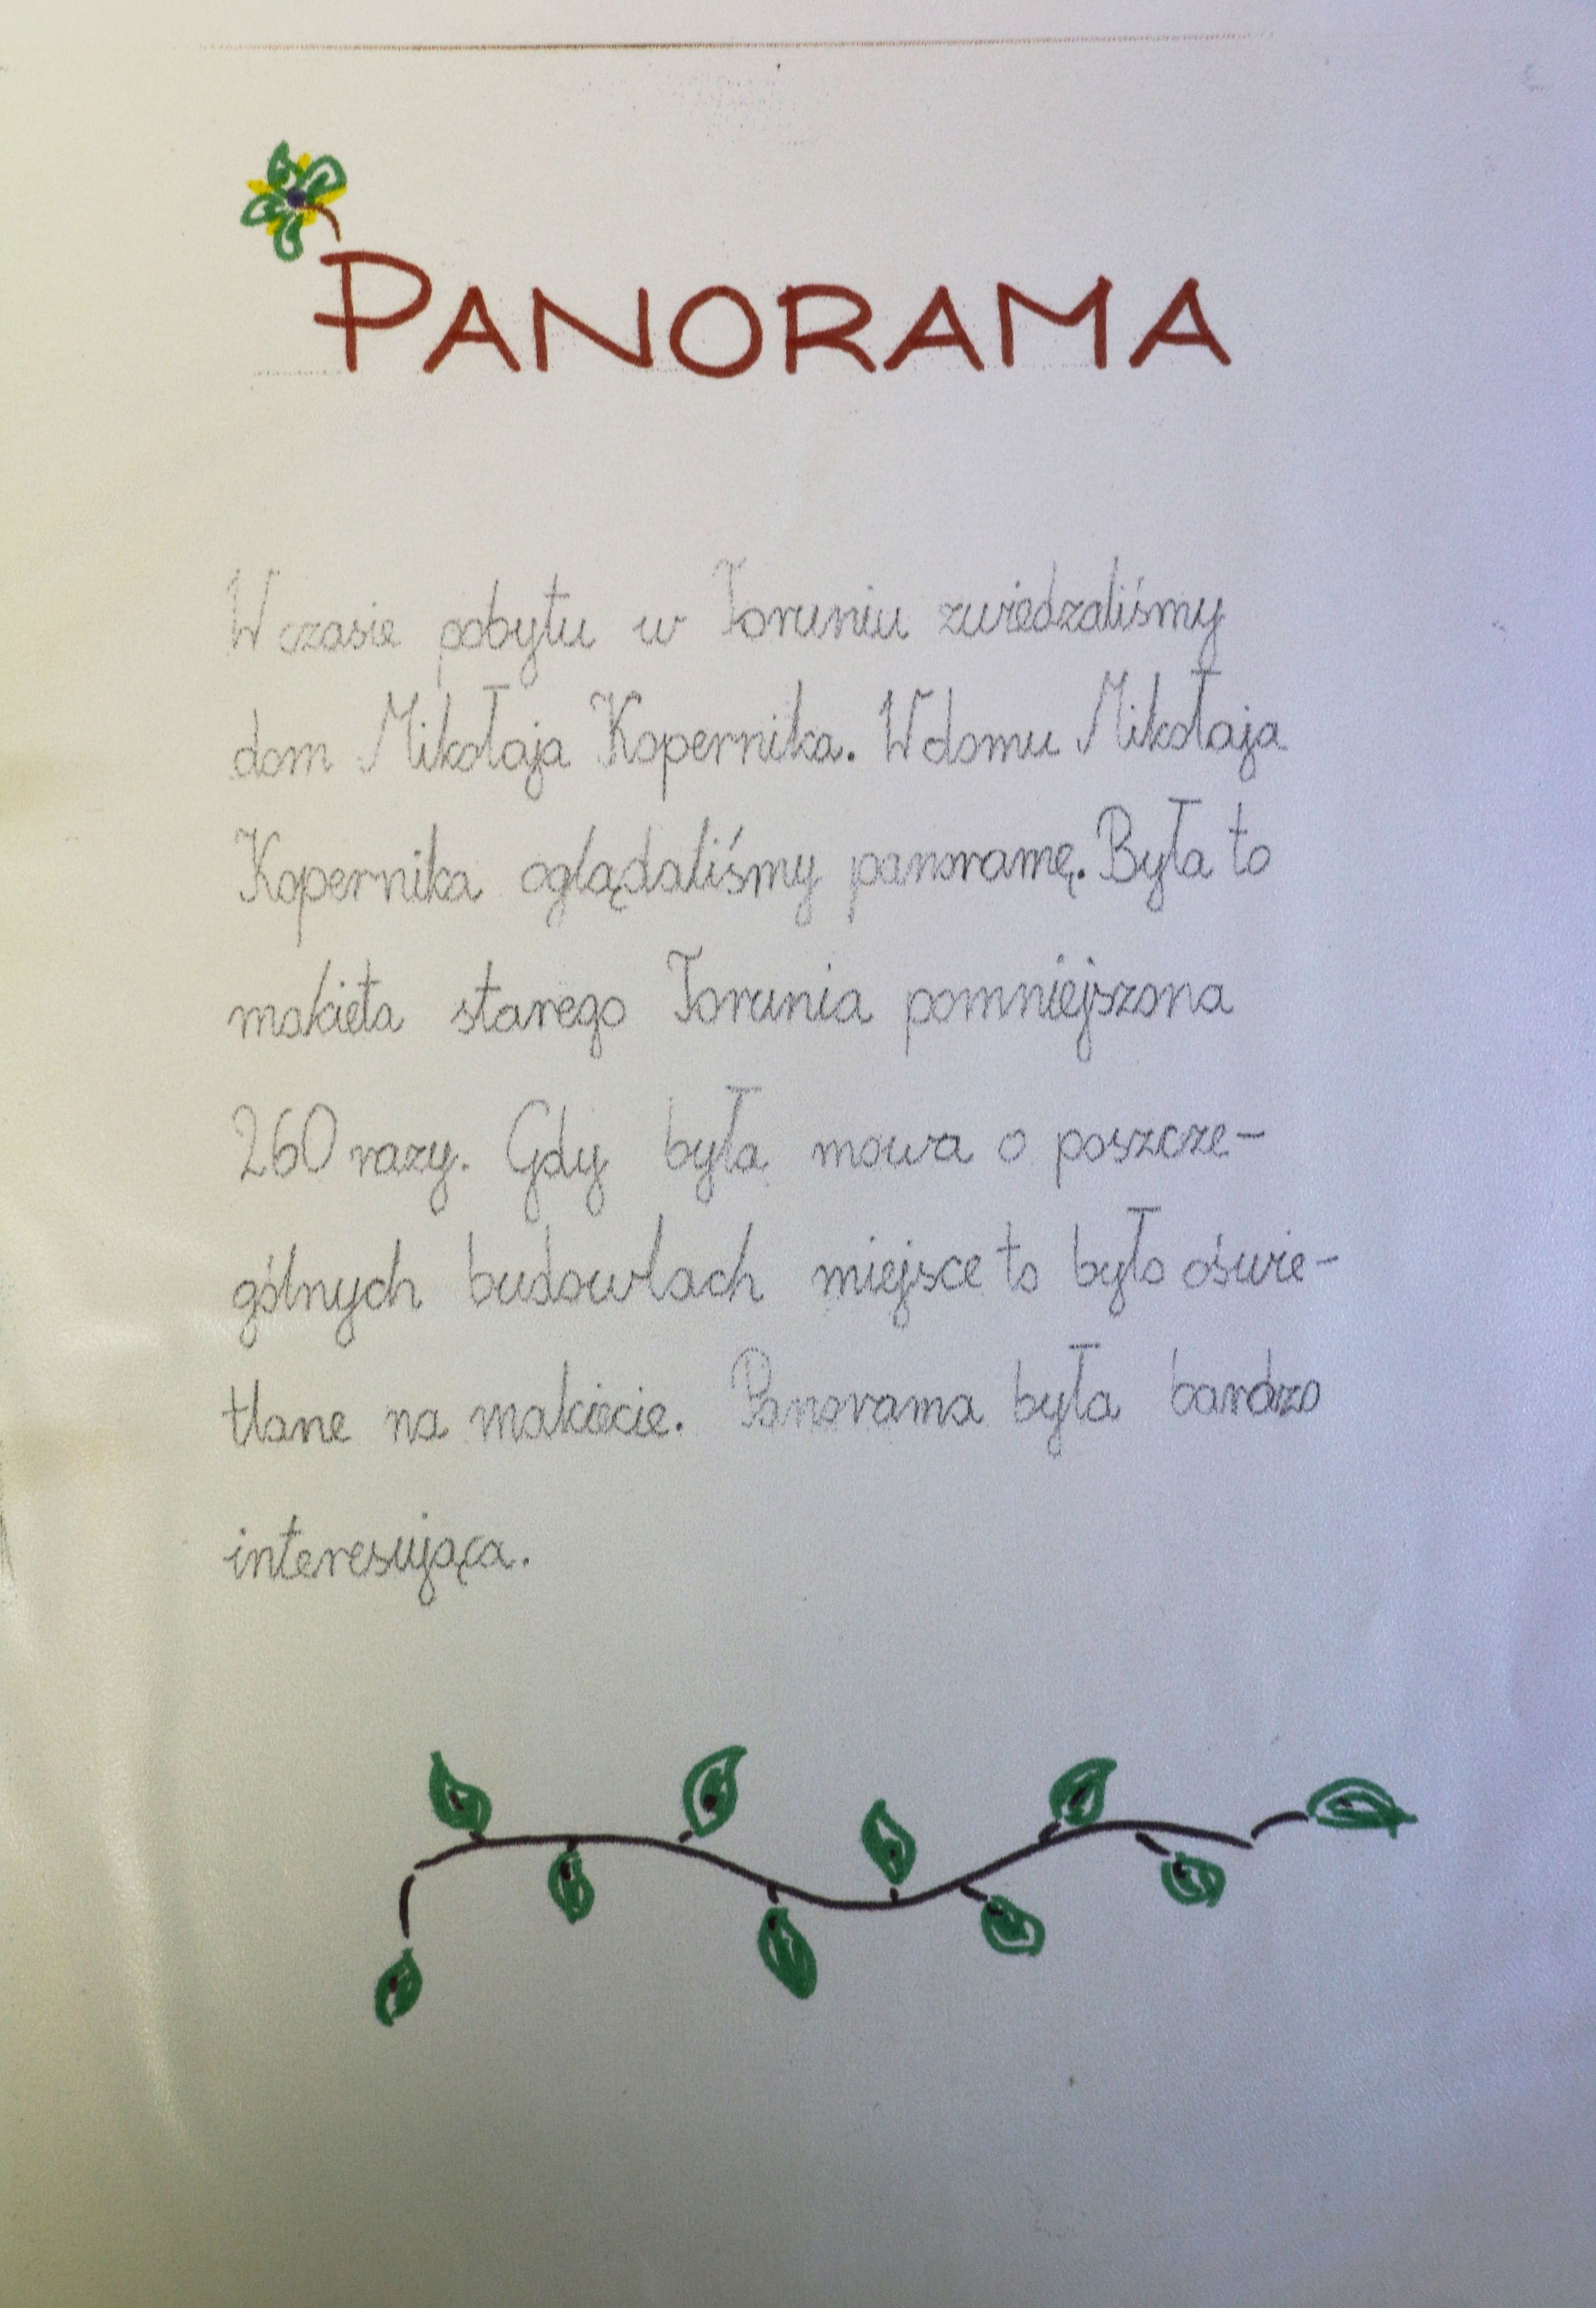 PANORAMA
W czasie pobytu w Toruniu zwiedzaliśmy
dom Mikołaja Kopernika. W domu Mikołaja
Kopernika oglądaliśmy panoramę. Była to
makieta starego Torunia pomniejszona
260 razy. Gdy była mowa o poszcze-
gólnych budowlach miejsce to było oświe-
tlane na makiecie. Panorama była bardzo
interesująca.